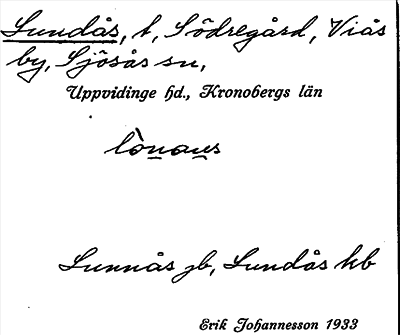 Lundås, t, Södregård, Viås
by, Sjösås sn,
Uppvidinge hd., Kronobergs län
Lunnås jb, Lundås kb
Erik Johannesson 1933